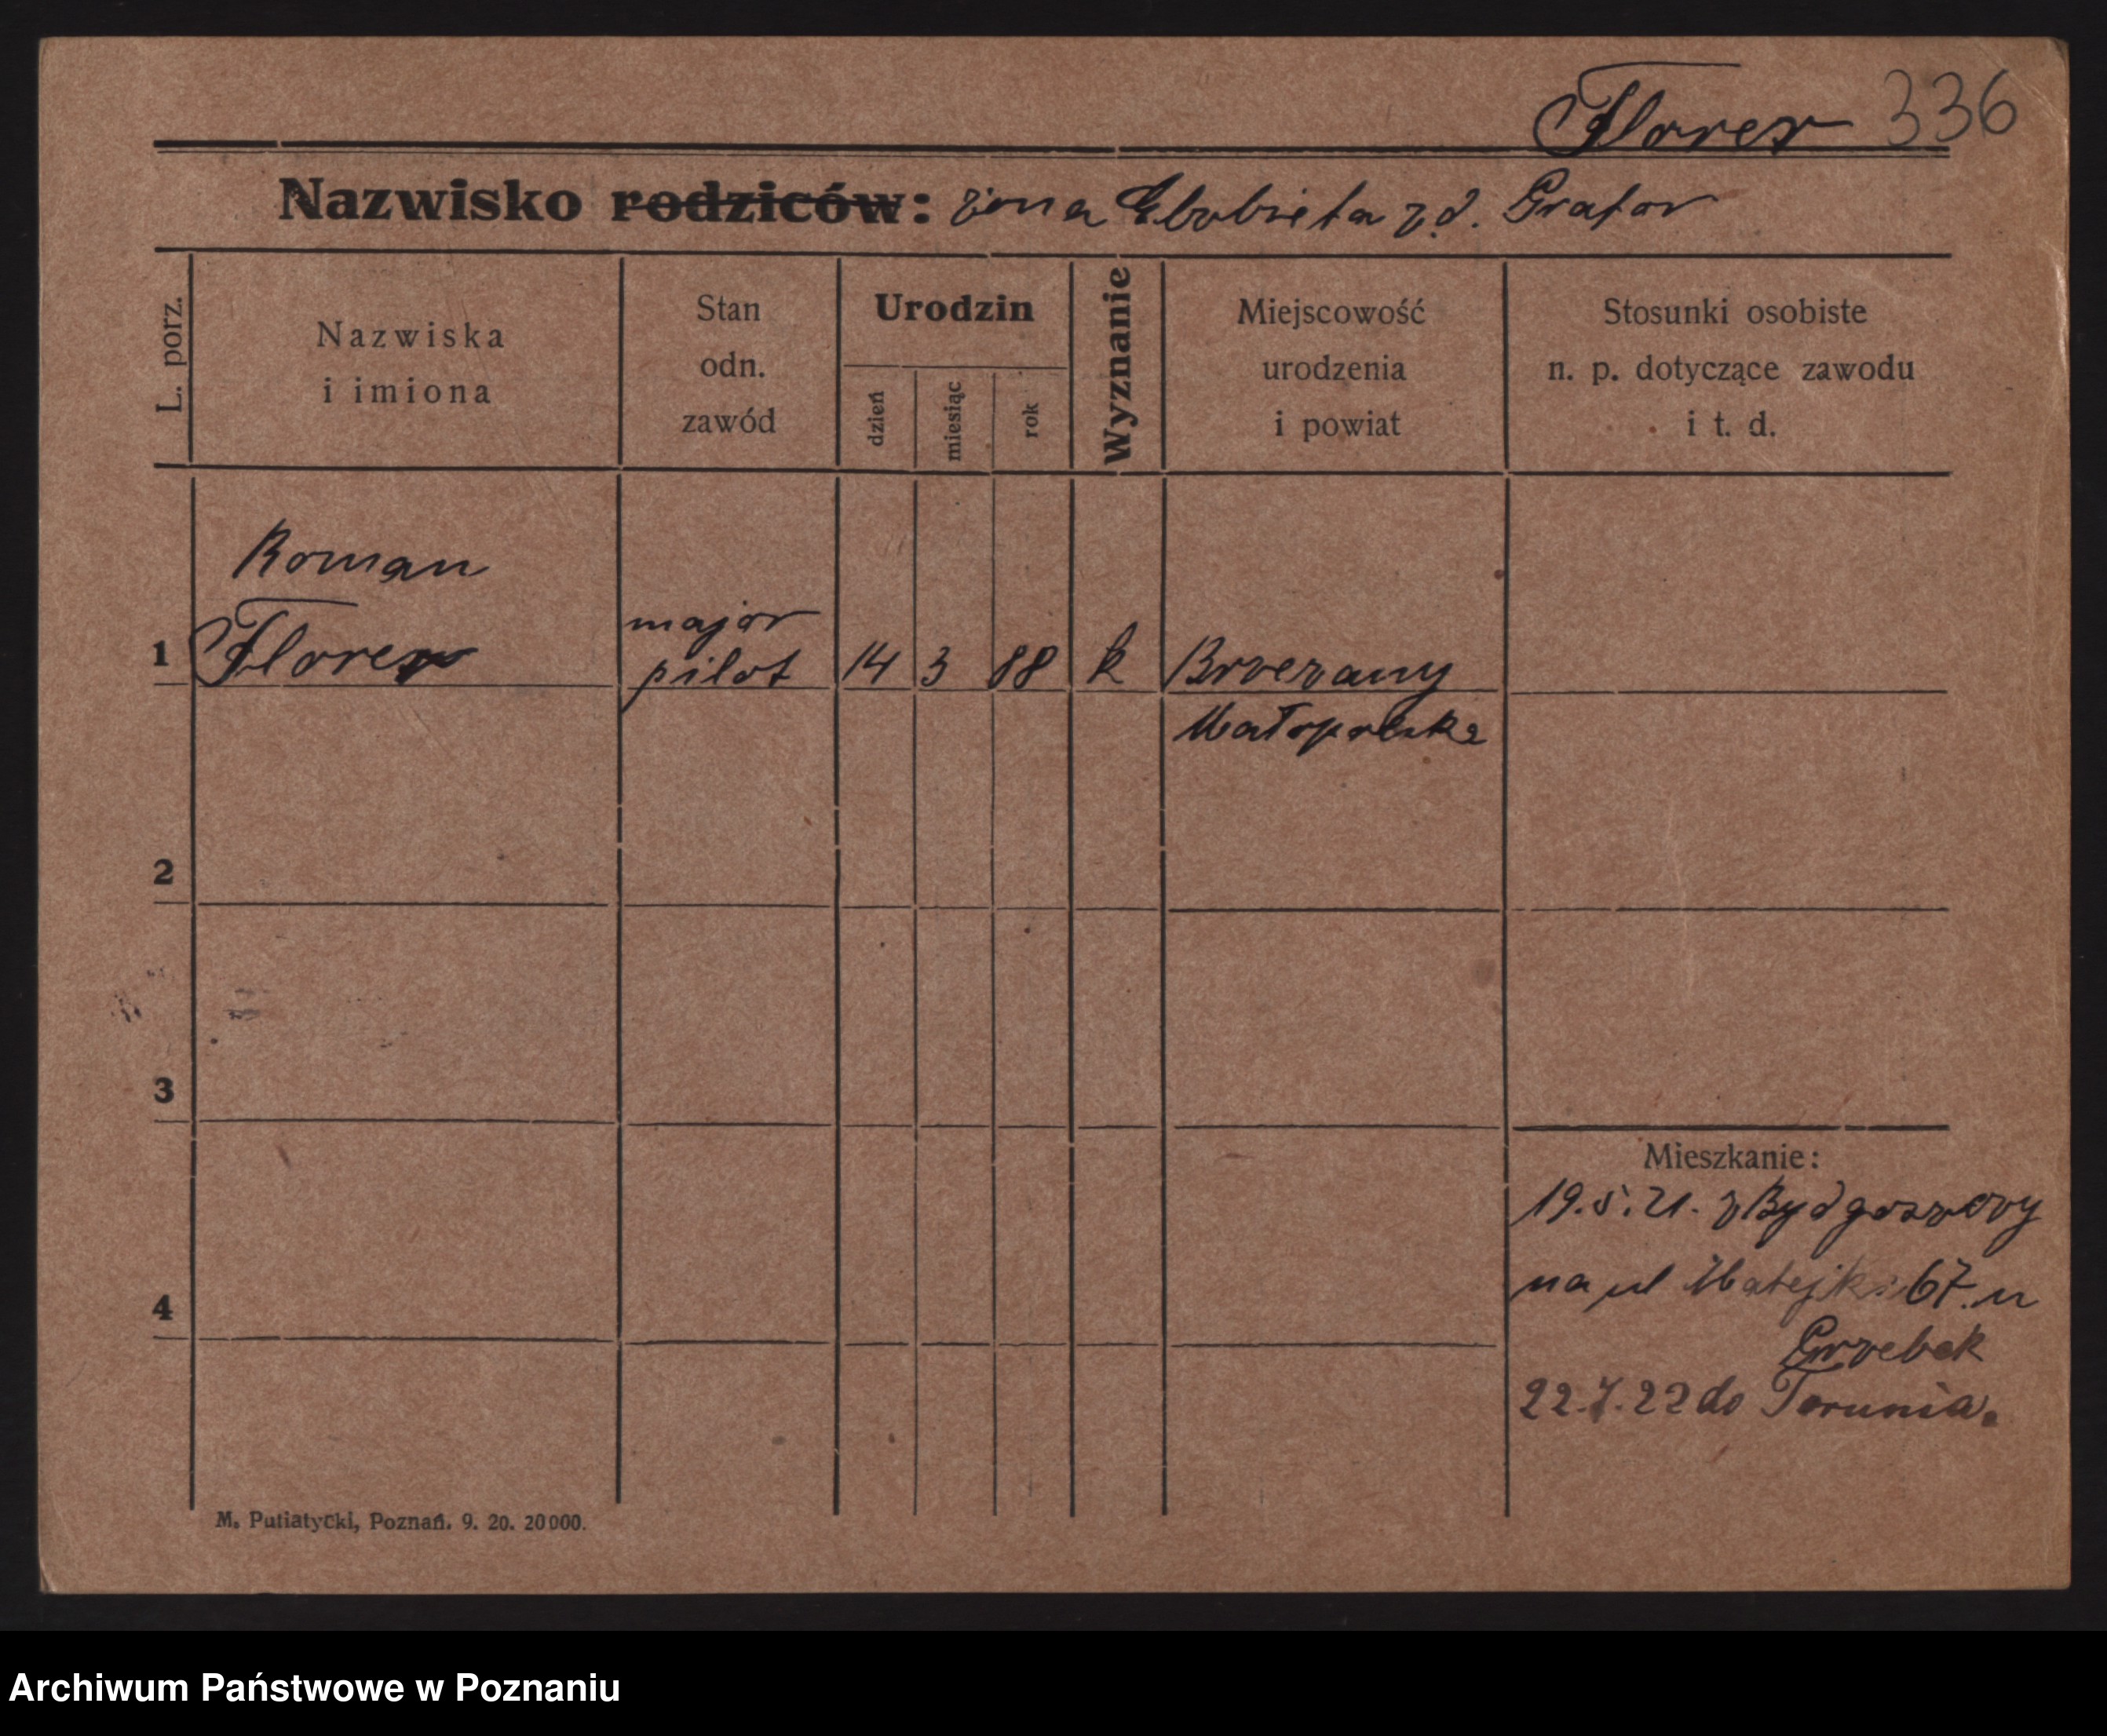 Florer 336
Nazwisko rodziców: żona Elzbieta z d. Grafor
L. porz.
Nazwiska
i imiona
Stan
odn.
zawód
Urodzin
dzień
miesiąc
rok
Wyznanie
Miejscowość
urodzenia
i powiat
Stosunki osobiste
n. p. dotyczące zawodu
i t. d.
Roman
1 Florer
major
pilot
14 3 88 k Brzezany
Małopolska
2
3
4
Mieszkanie:
19.5.21. z Bydgoszczy
na ul Matejki 67. u
Grzebek
22.7.22 do Torunia.
M. Putiatycki, Poznań. 9. 20. 20000.
Archiwum Państwowe w Poznaniu